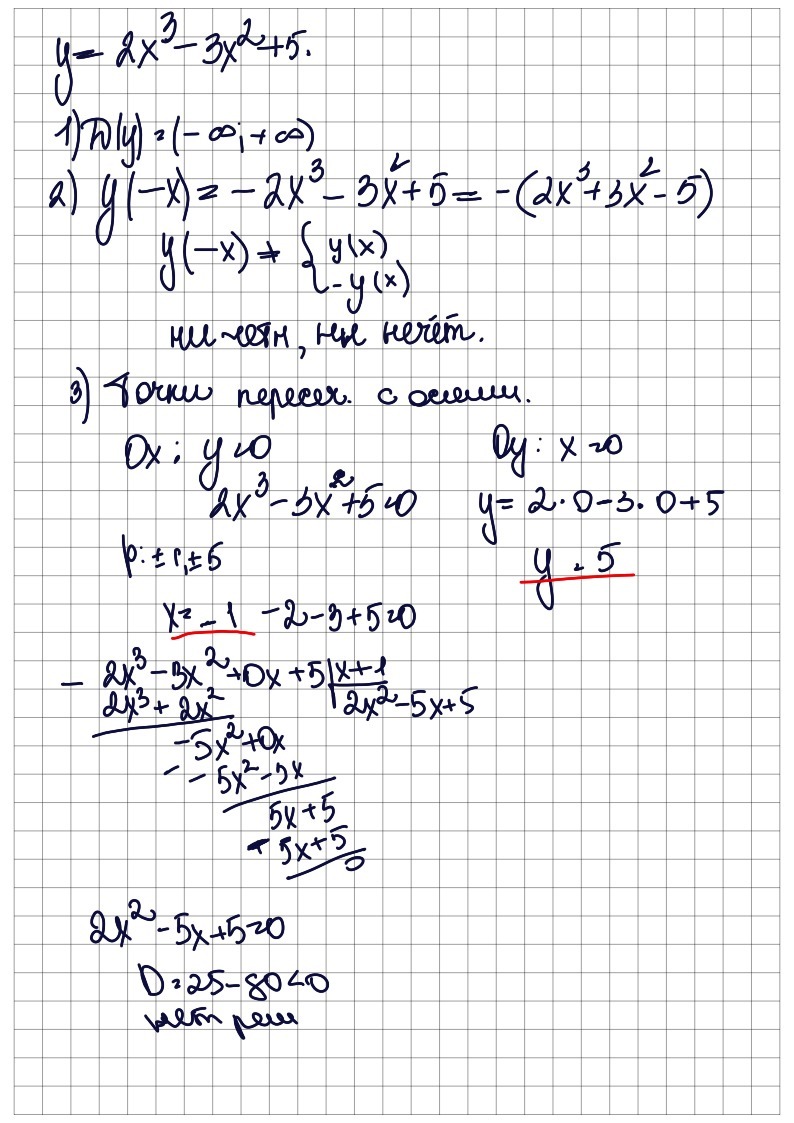 y = 2x³ - 3x² + 5.
1) D(y) = (-∞; +∞)
2) y(-x) = -2x³ - 3x² + 5 = -(2x³ + 3x² - 5)
y(-x) ≠ { y(x)
-y(x)
ни четн, ни нечёт.
3) Точки пересеч. с осями.
Ox: y = 0
2x³ - 3x² + 5 = 0
p: ±1, ±5
x = -1 -2 - 3 + 5 = 0
- 2x³ - 3x² + 0x + 5 | x + 1
2x³ + 2x² | 2x² - 5x + 5
-5x² + 0x
- -5x² - 5x
5x + 5
- 5x + 5
0
2x² - 5x + 5 = 0
D = 25 - 80 < 0
нет реш
Oy: x = 0
y = 2·0 - 3·0 + 5
y = 5